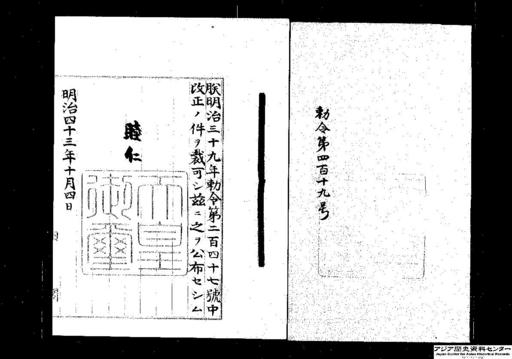 勅令第四百十九号
朕明治三十九年勅令第二百四十七號中
改正ノ件ヲ裁可シ茲ニ之ヲ公布セシム
睦仁
天皇
御璽
明治四十三年十月四日
アジア歴史資料センター
Japan Center for Asian Historical Records